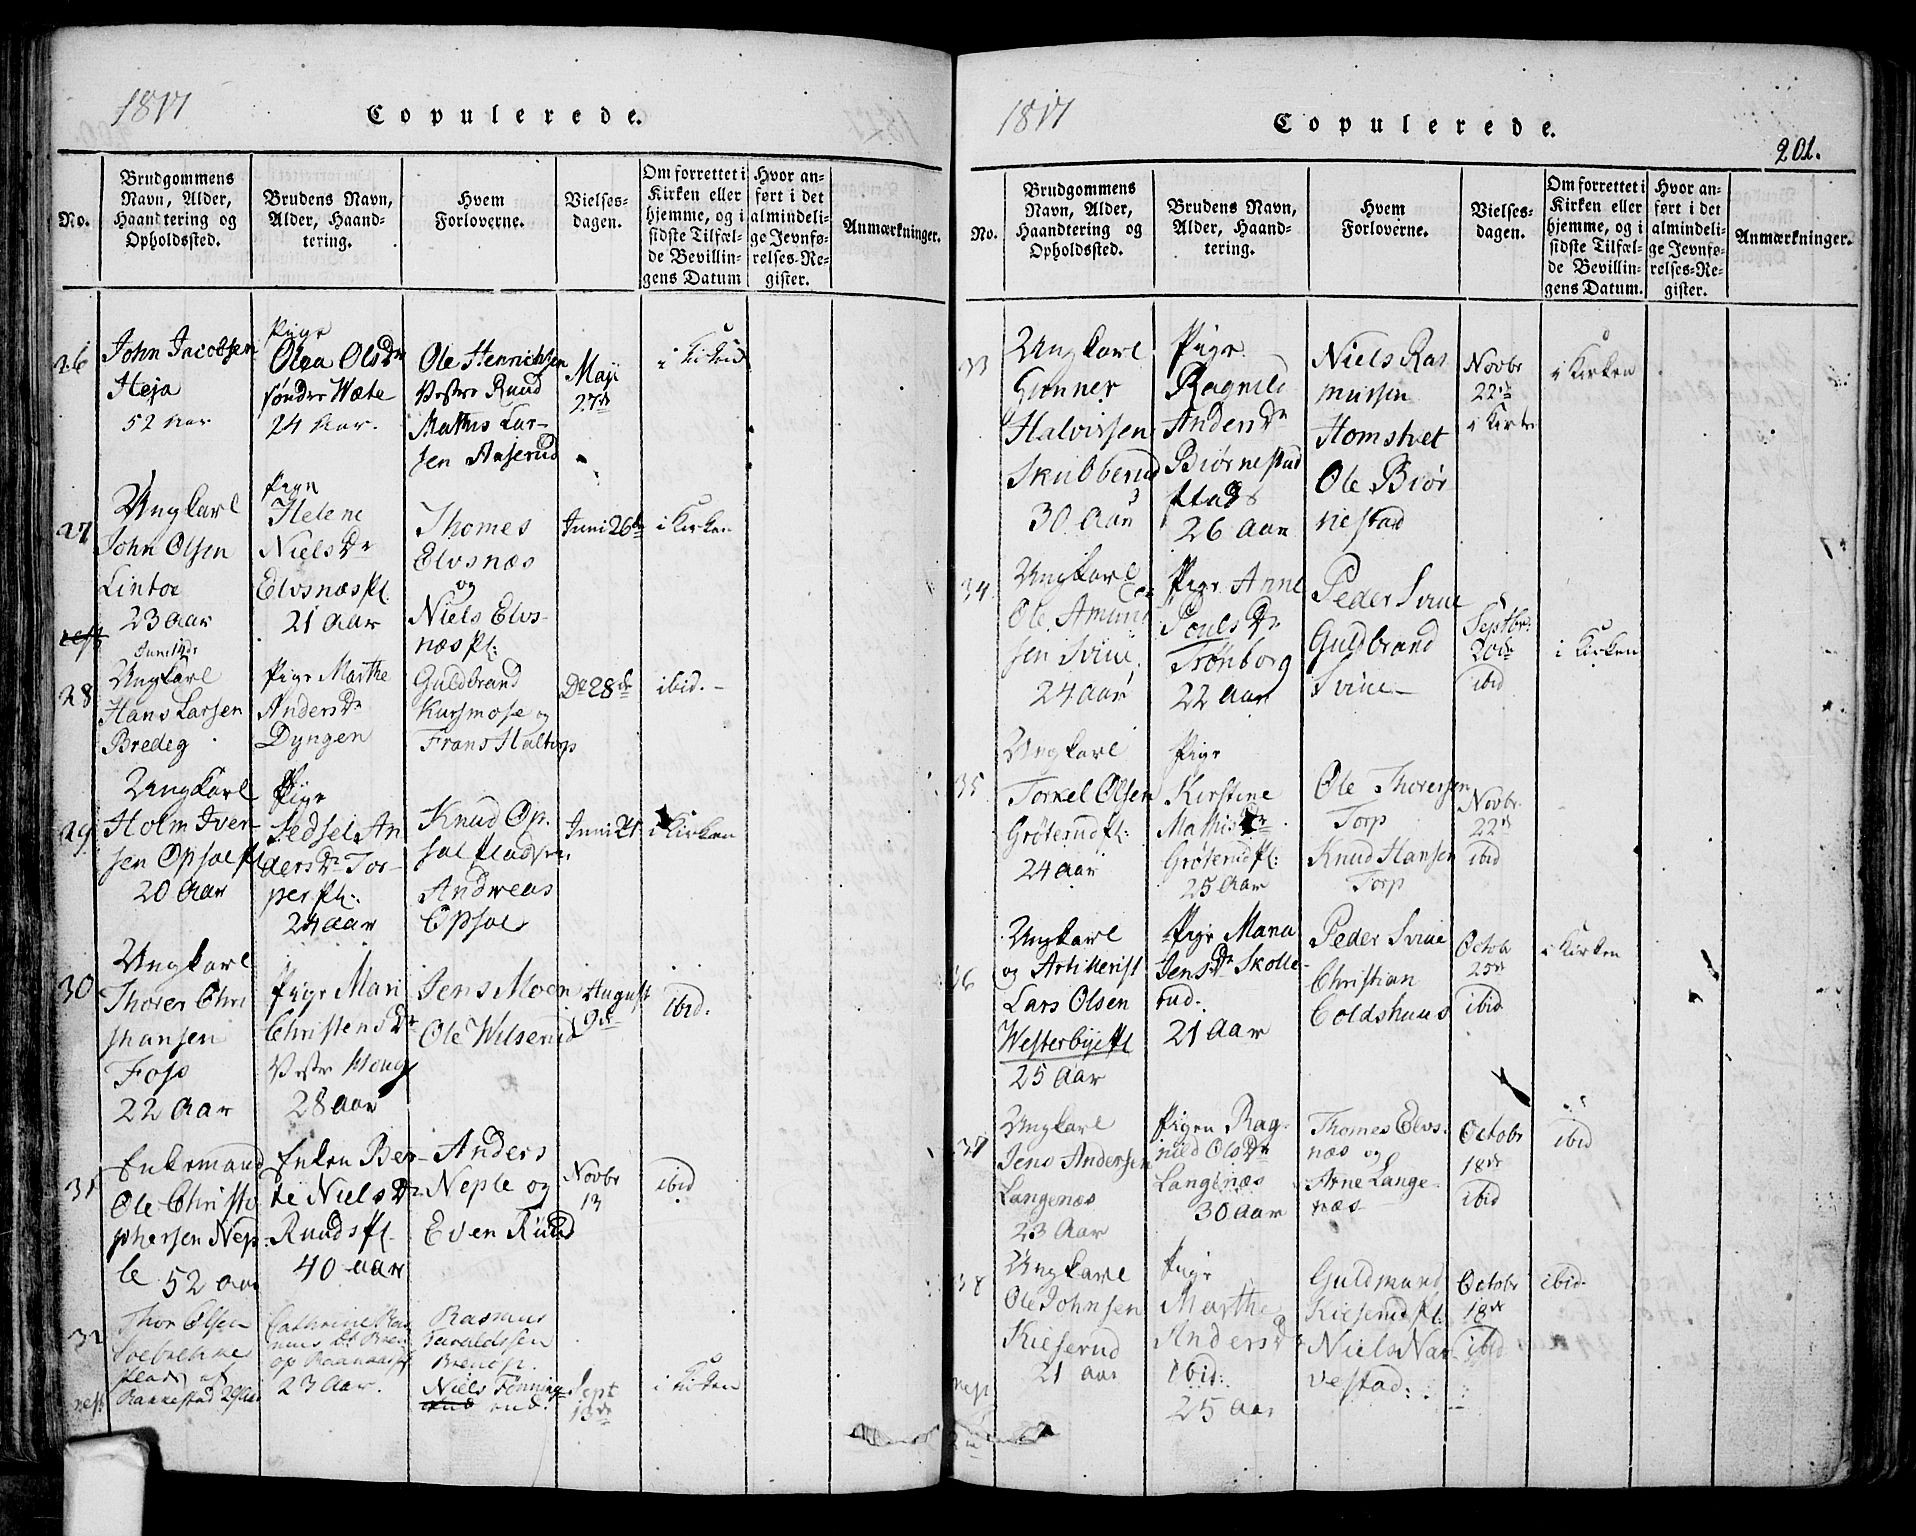 1817
Copulerede.
No.
Brudgommens
Navn, Alder,
Haandtering og
Opholdssted.
Brudens Navn,
Alder, Haand-
tering.
Hvem
Forloverne.
Vielses-
dagen.
Om forrettet i
Kirken eller
hjemme, og i
sidste Tilfæl-
de Bevillin-
gens Datum
Hvor an-
ført i det
almindeli-
ge Jevnfø-
relses-Re-
gister.
Anmærkninger.
26
John Jacobsen
Heja
52 Aar
Pige
Olea Olsdr
søndre Wæte
24 Aar.
Ole Henrichsen
Vestre Ruud
Mathis Lar-
sen Aaserud
Maji
27de
i Kirken
27
Ungkarl
John Olsen
Lintoe
23 Aar
Pige
Helene
Nielsdr
Elvsnæs Pl.
21 Aar
Thomes
Elvsnæs
og
Niels Elvs-
næs Pl:
Juni 26de
i Kirken
28
Juni 14de
Ungkarl
Hans Larsen
Bredeg
Pige Marthe
Andersdr
Dyngen
Guldbrand
Kursmose og
Frans Haltorp
Do 28de
ibid. -
29
Ungkarl
Holm Iver-
sen Opsoe Pl
20 Aar
Pige
Sedsel An
dersdr Tor-
per Pl:
24 Aar
Knud Op.
soe
Andreas
Opsoe
Juni 21
i Kirken
30
Ungkarl
Thorer Chri
stiansen
Foss
22 Aar
Pige Mari
Christensdr
Vestre Houg
28 aar
Jens Moen
Ole Wilserud
August
9de
ibid.
31
Enkemand
Ole Christo
phersen Nep-
le 52 aar
Enken Ber-
te Nielsdr
Ruuds Pl.
40 aar
Anders
Neple og
Even Ruud
Novbr
13
ibid
32
Thor Olsen
Rakkestad 29 Aar
Cathrine Ras
mus dt
23 Aar.
Rasmus
Taraldssen
Niels Tønning
rud.
Sept
13de
i Kirken
1817
Copulerede.
201.
No.
Brudgommens
Navn, Alder,
Haandtering og
Opholdssted.
Brudens Navn,
Alder, Haand-
tering.
Hvem
Forloverne.
Vielses-
dagen.
Om forrettet i
Kirken eller
hjemme, og i
sidste Tilfæl-
de Bevillin-
gens Datum.
Hvor an-
ført i det
almindeli-
ge Jevnfø-
relses-Re-
gister.
Anmærkninger.
33
Ungkarl
Gunner
Halvorsen
Skulberud
30 Aar
Pige
Ragnild
Andersdr
Biørnestad
26 Aar
Niels Ras
mussen
Homstvet
Ole Biør
nestad
Novbr
22de
i Kirken
i Kirken
34
Ungkarl
Ole Amund
sen Sviue
24 Aar
Pige Anne
Poulsdr
Trønborg
22 Aar
Peder Sviue
Guldbrand
Sviue
Septbr
20de
ibid
i Kirken
35
Ungkarl
Torkel Olsen
Grøterud Pl:
24 aar
Pige
Kirstine
Mathisdr
Grøterud Pl:
25 Aar
Ole Thoresen
Torp
Knud Hansen
Torp
Novbr
22de
ibid
36
Ungkarl
og Artillerist
Lars Olsen
Westerbye Pl
25 Aar
Pige Maria
Jensdr Skolle-
rud.
21 Aar
Peder Sviue
Christian
Coldshuus
Octobr
25de
ibid
i Kirken
37
Ungkarl
Jens Andersen
Langenæs
23 Aar
Pigen Rag-
nild Olsdr
Langenæs
30 aar
Thomes Elvs-
næs og
Arne Lange-
næs
Octobr
18de
ibid
ibid
38
Ungkarl
Ole Johnsen
Kieserud
21 aar
Pige
Marthe
Andersdr
ibid:
25 aar
Guldmund
Kieserud Pl:
Niels Nar
vestad:
Octobr
18de
ibid
ibid.